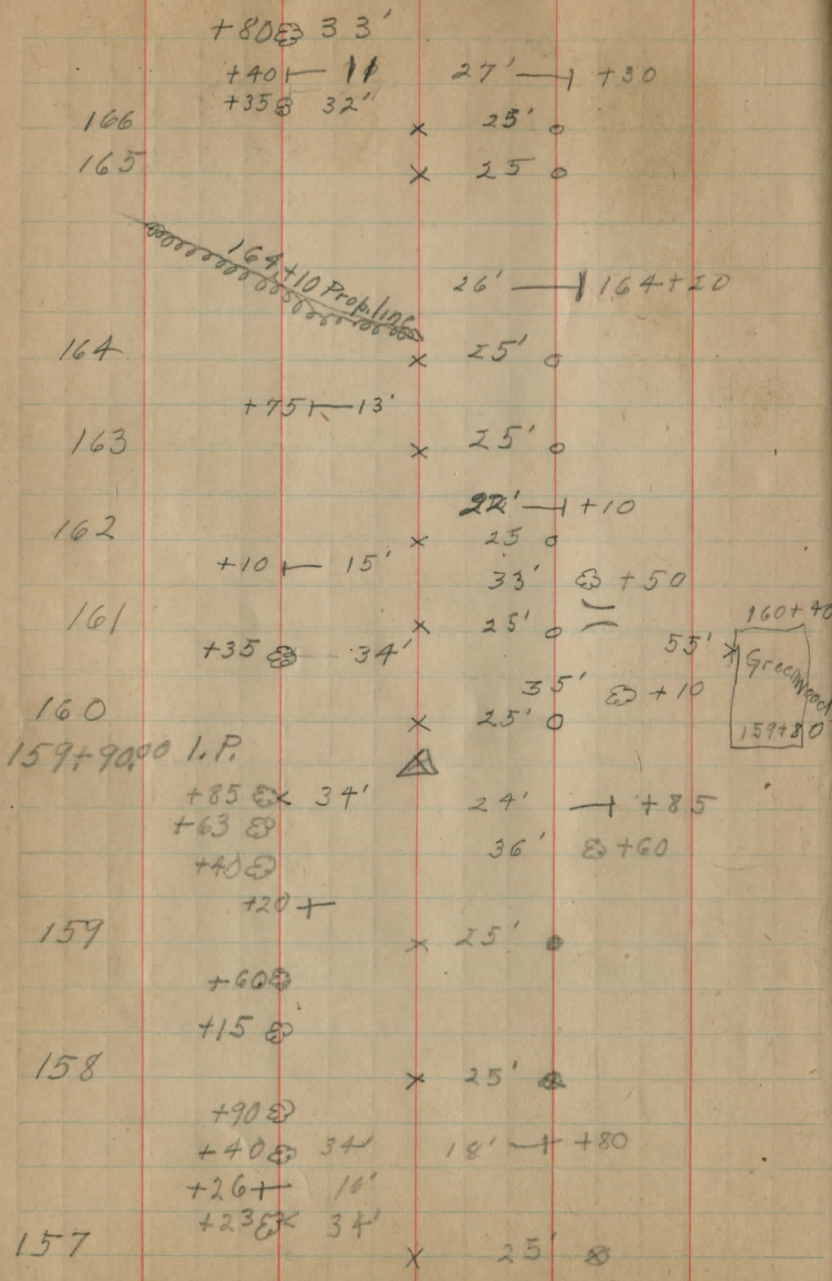 +80 33'
+40 11 27' +30
+35 32'
166 25'
165 25
164+10 Prop. line
26' 164+20
164 25'
+75 13'
163 25'
22' +10
162 25
+10 15'
33' +50
161 25' 160+40
+35 34' 55' Greenwood
35' +10
160 25' 159+80
159+90.00 I.P.
+85 34' 24' +85
+63
36' +60
+40
+20
159 25'
+60
+15
158 25'
+90
+40 34' 18' +80
+26 16'
+23 34'
157 25'